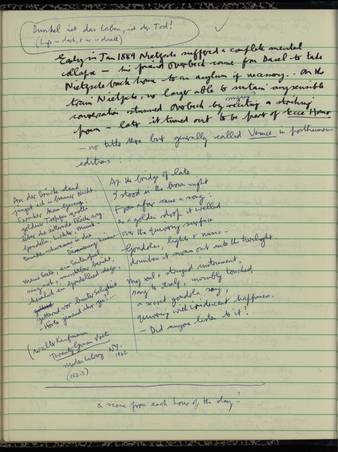 Dunkel ist das Leben, ist der Tod!
(Life is dark, & is death)
Early in Jan 1889 Nietzsche suffered a complete mental
collapse – his friend Overbeck came from Basel to take
Nietzsche back home to an asylum if necessary. On the
train Nietzsche, no longer able to sustain any sensible
conversation stunned Overbeck by reciting a
singing
poem – later it turned out to be part of Ecce Homo
– no title there but generally called Venice in posthumous
editions.
An der Brücke stand
jüngst ich in brauner Nacht.
Fernher kam Gesang;
goldener Tropfen quoll's
über die zitternde Fläche weg.
Gondeln, Lichter, Musik –
trunken schwamm's in die
Dämmerung hinaus
Meine Seele, ein Saitenspiel,
sang sich, unsichtbar berührt,
heimlich ein Gondellied dazu,
zitternd vor bunter Seligkeit
– Hörte jemand ihr zu?
(Walter Kaufmann
Twenty German Poets
Modern Library N.Y.
1962
At the bridge of late
I stood in the brown night
From afar came a song:
as a golden drop it welled
over the quivering surface
Gondolas, lights & music –
drunken it swam out into the twilight
My soul, a stringed instrument,
sang to itself, invisibly touched
a secret gondola song,
quivering with iridescent happiness.
– Did anyone listen to it?
a scene from each hour of the day?